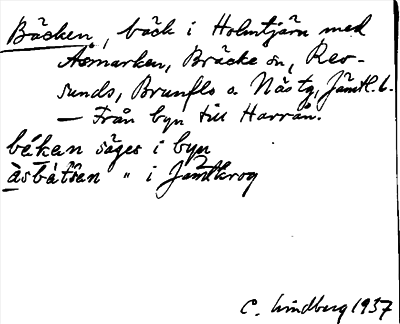 Bäcken, bäck i Holmtjärn med
Åsmarken, Bräcke sn, Rev-
sunds, Brunflo o Näs tg, Jämtl. l.
— Från byn till Harrån.
békan säges i byn
åsbátsen " i Jämtkrog
C. Lindberg 1937